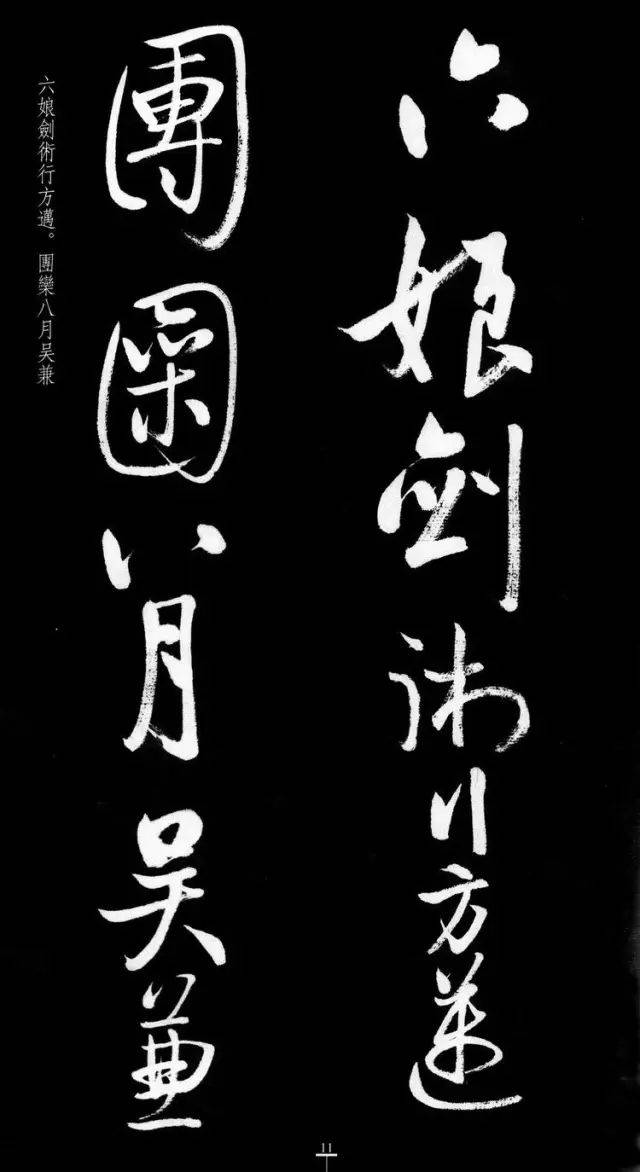 六娘劍術行方邁
團圞八月吳兼
六娘劍術行方邁。團欒八月吳兼
11